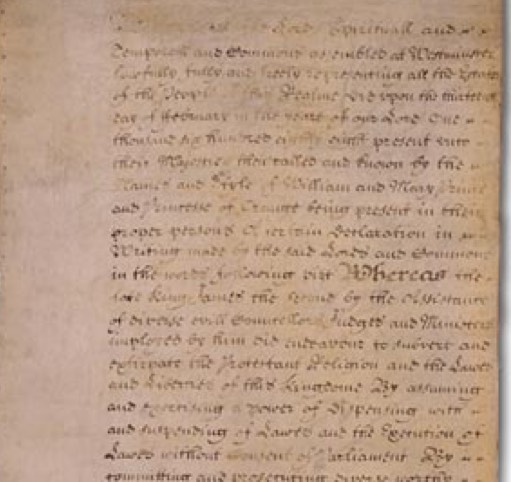 the Lords Spirituall and
Temporall and Commons assembled at Westminster
lawfully fully and freely representing all the Estates
of the People of this Realme Did upon the thirteenth
day of February in the yeare of our Lord One
thousand six hundred eighty eight present unto
their Majesties then called and known by the
Names and Stile of William and Mary Prince
and Princesse of Orange being present in their
proper persons A certain Declaration in
Writing made by the said Lords and Commons
in the words following viz Whereas the
late King James the second by the Assistance
of diverse evill Councellors Judges and Ministers
imployed by him did endeavour to subvert and
extirpate the Protestant Religion and the Lawes
and Liberties of this Kingdome By assuming
and exercising a power of dispensing with
and suspending of Lawes and the Execution of
Lawes without Consent of Parliament By
committing and prosecuting diverse worthy